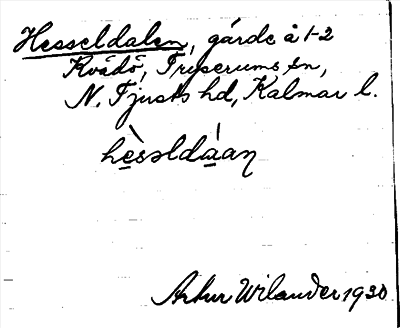 Hesseldalen, gärde å 1-2
Kvädö, Tryserums sn,
N. Tjusts hd, Kalmar l.
hèsəldáan
Artur Wilander 1930